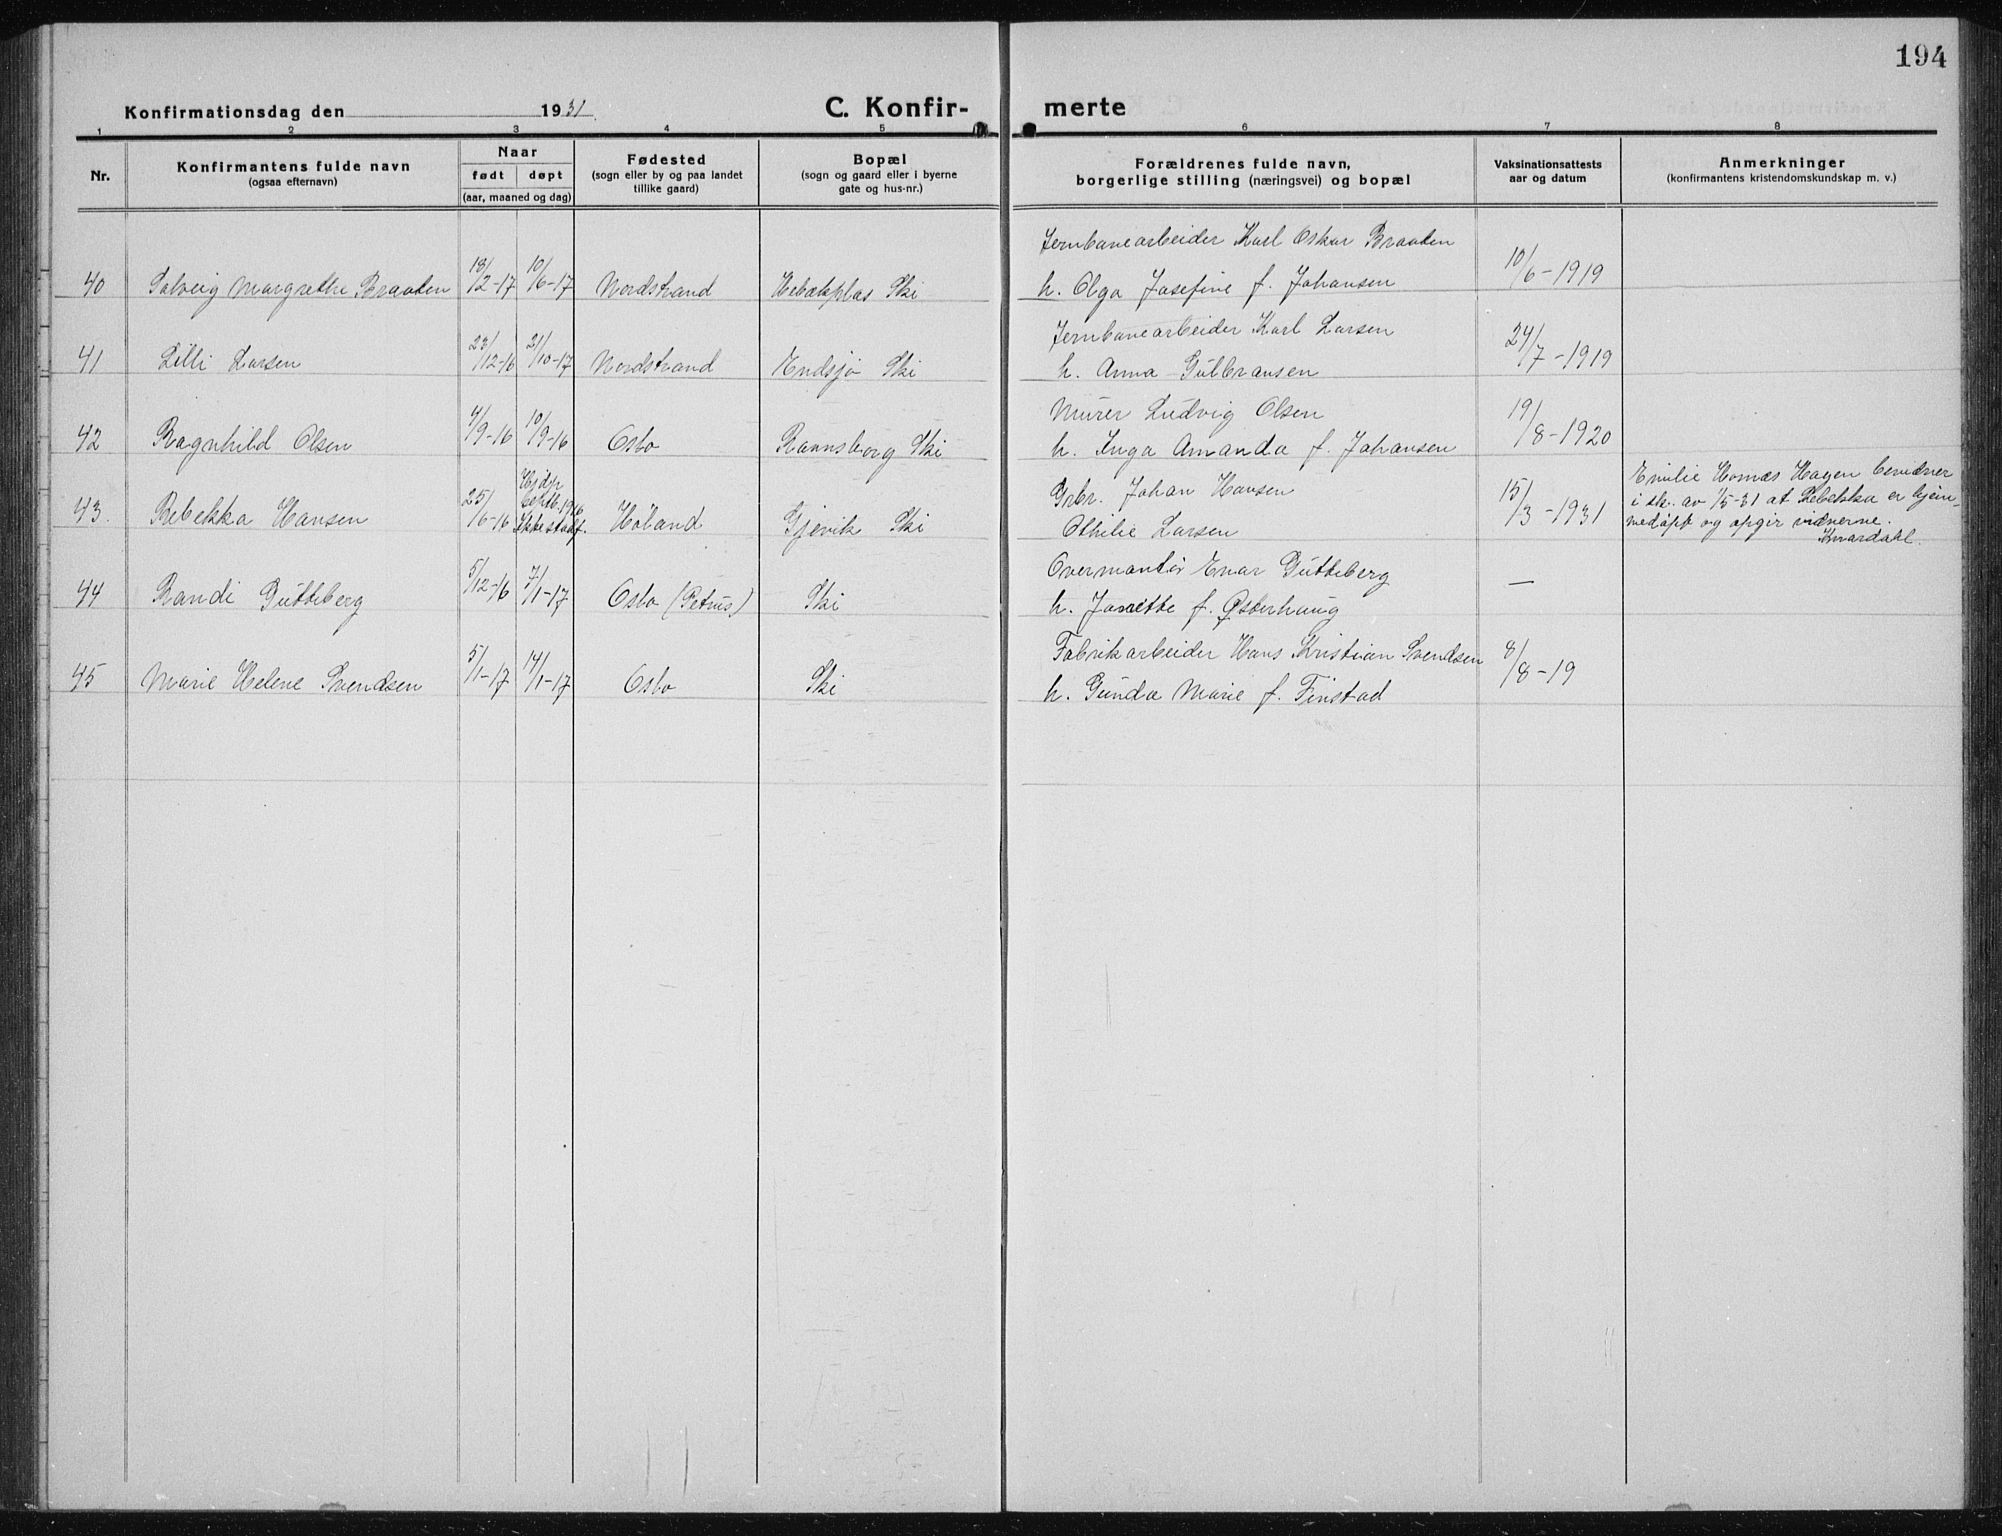 194
Konfirmationsdag den 1931. C. Konfir- merte
1 2 3 4 5 6 7 8
Nr. Konfirmantens fulde navn (ogsaa efternavn) Naar født døpt (aar, maaned og dag) Fødested (sogn eller by og paa landet tillike gaard) Bopæl (sogn og gaard eller i byerne gate og hus-nr.) Forældrenes fulde navn, borgerlige stilling (næringsvei) og bopæl Vaksinationsattests aar og datum Anmerkninger (konfirmantens kristendomskundskap m. v.)
Jernbanearbeider Karl Oskar Braaten
40 Solveig Margrethe Braaten 18/2-17 10/6-17 Nordstrand Ski h. Olga Josefine f. Johansen 10/6-1919
Jernbanearbeider Karl Larsen
41 Lilli Larsen 23/12-16 21/10-17 Nordstrand Endsjø Ski h. Anna Gulbransen 24/7-1919
Murer Ludvig Olsen
42 Ragnhild Olsen 4/9-16 10/9-16 Oslo Ravnsborg Ski h. Inga Amanda f. Johansen 19/8-1920
43. Rebekka Hansen 25/6-16 Hjdp Septb. 1916 Ikke stadf. Høland Gjevik Ski Grbr. Johan Hansen
Othilie Larsen 15/3-1931 Emilie Hornæs Hagen bevidner
i sk. av 1/5-31 at Rebekka er hjem-
medøpt og opgir vidnerne.
Kvardahl.
Overmontør Enar Gutteberg
44 Randi Gutteberg 5/12-16 7/1-17 Oslo (Petrus) Ski h. Janette f. Østerhaug —
Fabrikarbeider Hans Kristian Svendsen
45 Marie Helene Svendsen 5/1-17 14/1-17 Oslo Ski h. Gunda Marie f. Finstad 8/8-19